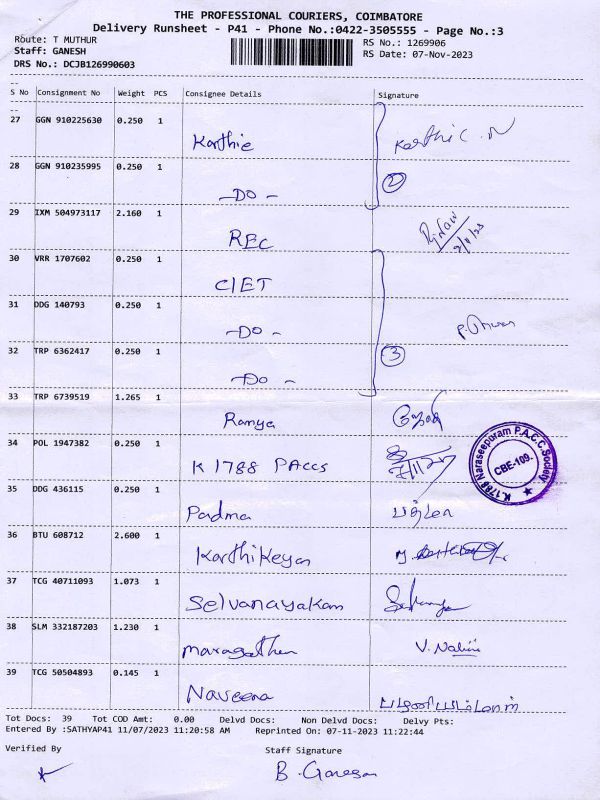 THE PROFESSIONAL COURIERS, COIMBATORE
Delivery Runsheet - P41 - Phone No.:0422-3505555 - Page No.:3
Route: T MUTHUR RS No.: 1269906
Staff: GANESH RS Date: 07-Nov-2023
DRS No.: DCJB126990603
S No Consignment No Weight PCS Consignee Details Signature
27 GGN 910225630 0.250 1
Karthie Karthic. N
28 GGN 910235995 0.250 1
2
-DO-
29 IXM 504973117 2.160 1
REC
30 VRR 1707602 0.250 1
CIET
31 DDG 140793 0.250 1
-DO-
32 TRP 6362417 0.250 1
3
-DO-
33 TRP 6739519 1.265 1
Ramya
34 POL 1947382 0.250 1
K 1788 PACCS
K.1788 Naraseepuram P.A.C.C. Society
CBE-109.
35 DDG 436115 0.250 1
Padma பத்மா
36 BTU 608712 2.600 1
Karthikeyan
37 TCG 40711093 1.073 1
Selvanayakam
38 SLM 332187203 1.230 1
maragathen V. Nalini
39 TCG 50504893 0.145 1
Naveena
Tot Docs: 39 Tot COD Amt: 0.00 Delvd Docs: Non Delvd Docs: Delvy Pts:
Entered By :SATHYAP41 11/07/2023 11:20:58 AM Reprinted On: 07-11-2023 11:22:44
Verified By Staff Signature
B. Ganesan